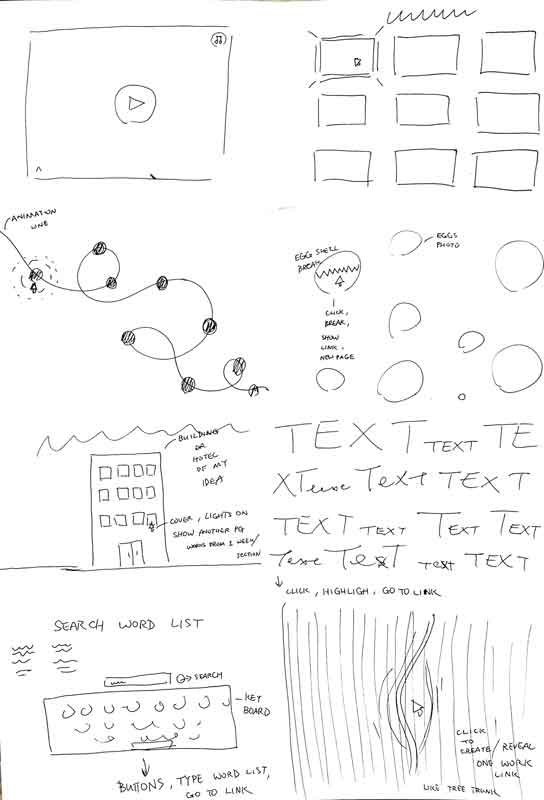 ANIMATION
LINE
EGG SHELL
BREAK
EGGS
PHOTO
CLICK,
BREAK,
SHOW
LINK,
NEW PAGE
BUILDING
OR
HOTEL
OF MY
IDEA
COVER, LIGHTS ON
SHOW ANOTHER PG
WORDS FROM 1 WEEK/
SECTION
TEXT TEXT TE
XTEXT TEXT TEXT
TEXT TEXT TEXT TEXT
TEXT TEXT TEXT TEXT
CLICK, HIGHLIGH, GO TO LINK
SEARCH WORD LIST
SEARCH
KEY
BOARD
BUTTONS, TYPE WORD LIST,
GO TO LINK
CLICK
TO
CREATE/REVEAL
ONE WORK
LINK
LIKE TREE TRUNK